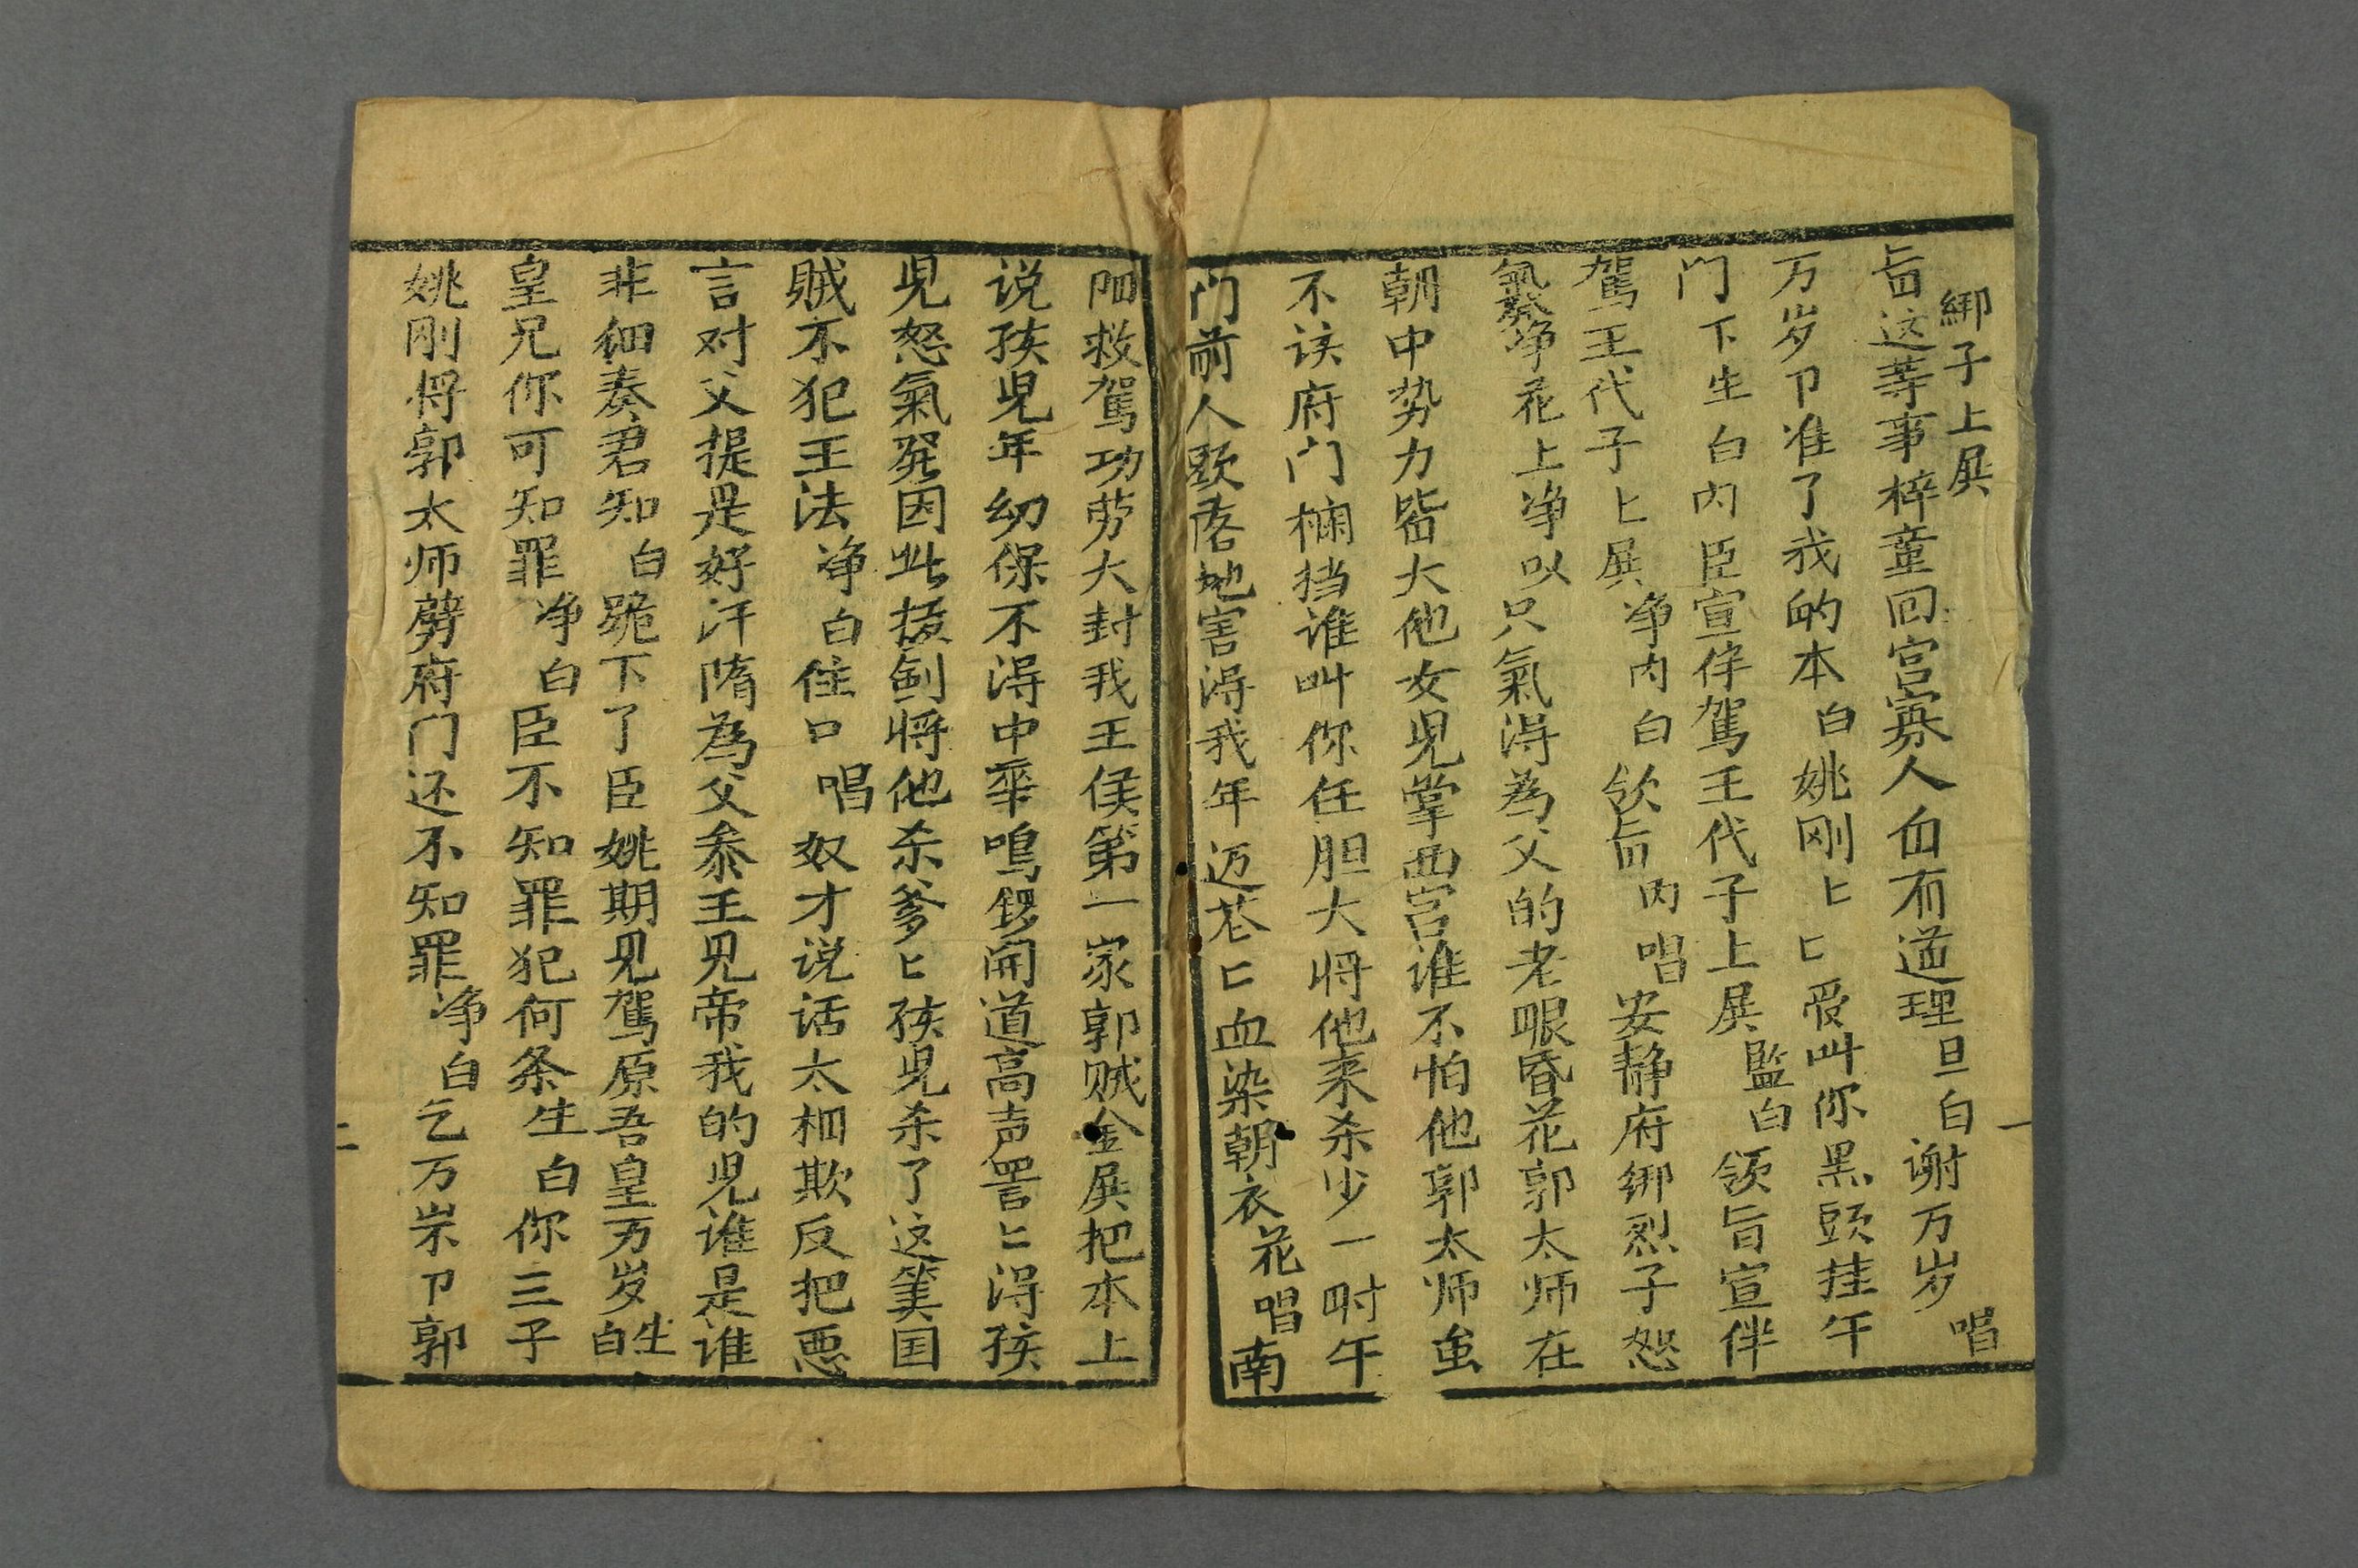 綁子上殿
旨这等事梓童回宫寡人自有道理旦白谢万岁唱
万岁卩准了我的本白姚刚匕匕受叫你黑頭挂午
门下生白内臣宣伴駕王代子上殿監白领旨宣伴
駕王代子上殿净内白钦旨内唱安静府绑烈子怒
氣發净花上净以只氣淂為父的老眼昏花郭太师在
朝中势力皆大他女児掌西宫谁不怕他郭太师虽
不该府门楠挡谁叫你任胆大将他来杀少一时午
门前人頭落地害淂我年迈苍匕血染朝衣花唱南
陌救駕功劳大封我王侯第一家郭贼金殿把本上
说孩児年幼保不淂中華鳴鑼開道高声詈匕淂孩
児怒氣發因此拔劍将他杀爹匕孩児杀了这箕国
贼不犯王法净白住口唱奴才说话太相欺反把悪
言对父提是好汗隋為父叅王見帝我的児谁是谁
非细奏君知白跪下了臣姚期見駕原吾皇万岁生白
皇兄你可知罪净白臣不知罪犯何条生白你三子
姚刚将郭太师劈府门还不知罪净白乞万岁卩郭
一
二